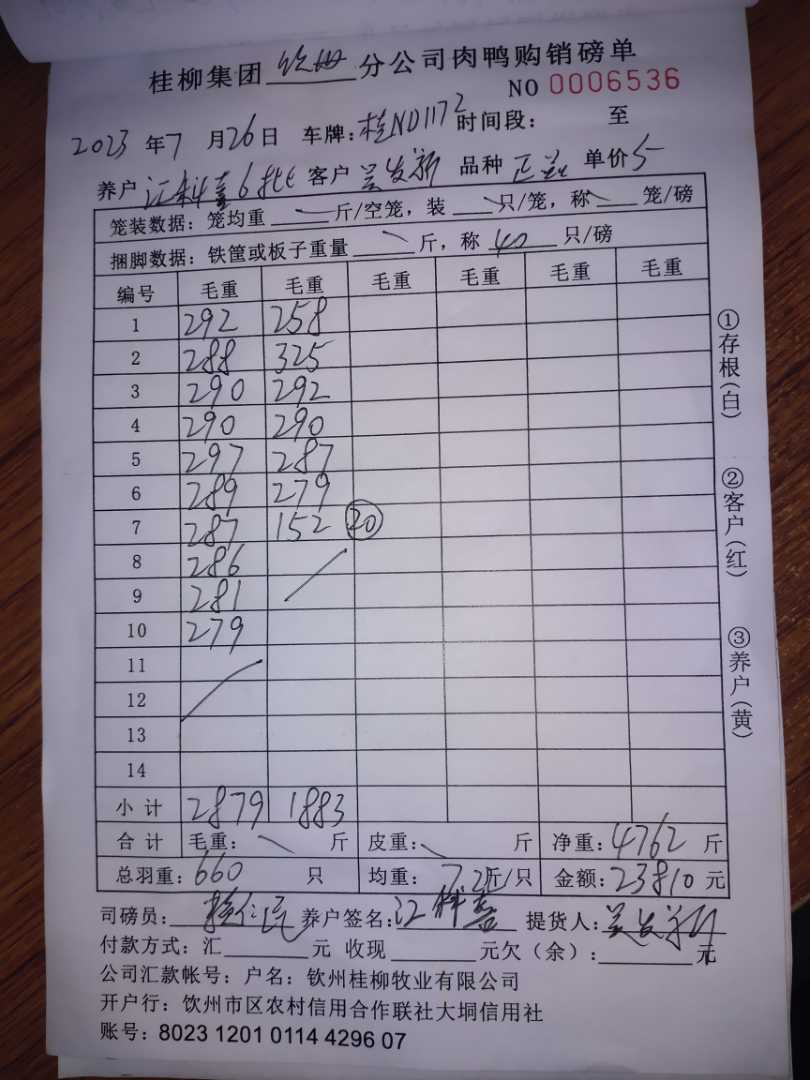 桂柳集团 钦州 分公司肉鸭购销磅单
NO 0006536
2023 年 7 月 26 日 车牌: 桂ND1172 时间段: 至
养户 江科喜6批 客户 吴发新 品种 单价 5
笼装数据: 笼均重 斤/空笼, 装 只/笼, 称 笼/磅
捆脚数据: 铁筐或板子重量 斤, 称 40 只/磅
编号 毛重 毛重 毛重 毛重 毛重 毛重
1 292 258
2 288 325
3 290 292
4 290 290
5 297 287
6 289 279
7 287 152 20
8 286
9 281
10 279
11
12
13
14
小计 2879 1883
合计 毛重: 斤 皮重: 斤 净重: 4762 斤
总羽重: 660 只 均重: 7.2 斤/只 金额: 23810 元
司磅员: 养户签名: 江科喜 提货人: 吴发新
付款方式: 汇 元 收现 元欠(余): 元
公司汇款帐号: 户名: 钦州桂柳牧业有限公司
开户行: 饮州市区农村信用合作联社大垌信用社
账号: 8023 1201 0114 4296 07
①存根(白)
②客户(红)
③养户(黄)